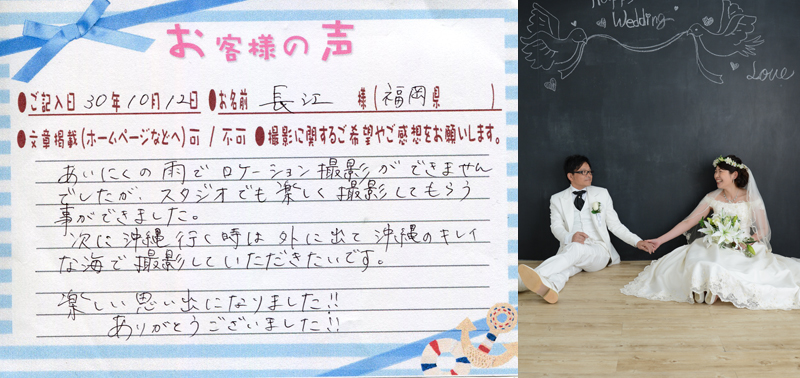 お客様の声
●ご記入日 30年10月12日 ●お名前 長江 様(福岡県 )
●文章掲載(ホームページなどへ)可 / 不可 ●撮影に関するご希望やご感想をお願いします。
あいにくの雨でロケーション撮影ができません
でしたが、スタジオでも楽しく撮影してもらう
事ができました。
次に沖縄行く時は外に出て沖縄のキレイ
な海で撮影していただきたいです。
楽しい思い出になりました!!
ありがとうございました!!
Happy
Wedding
Love